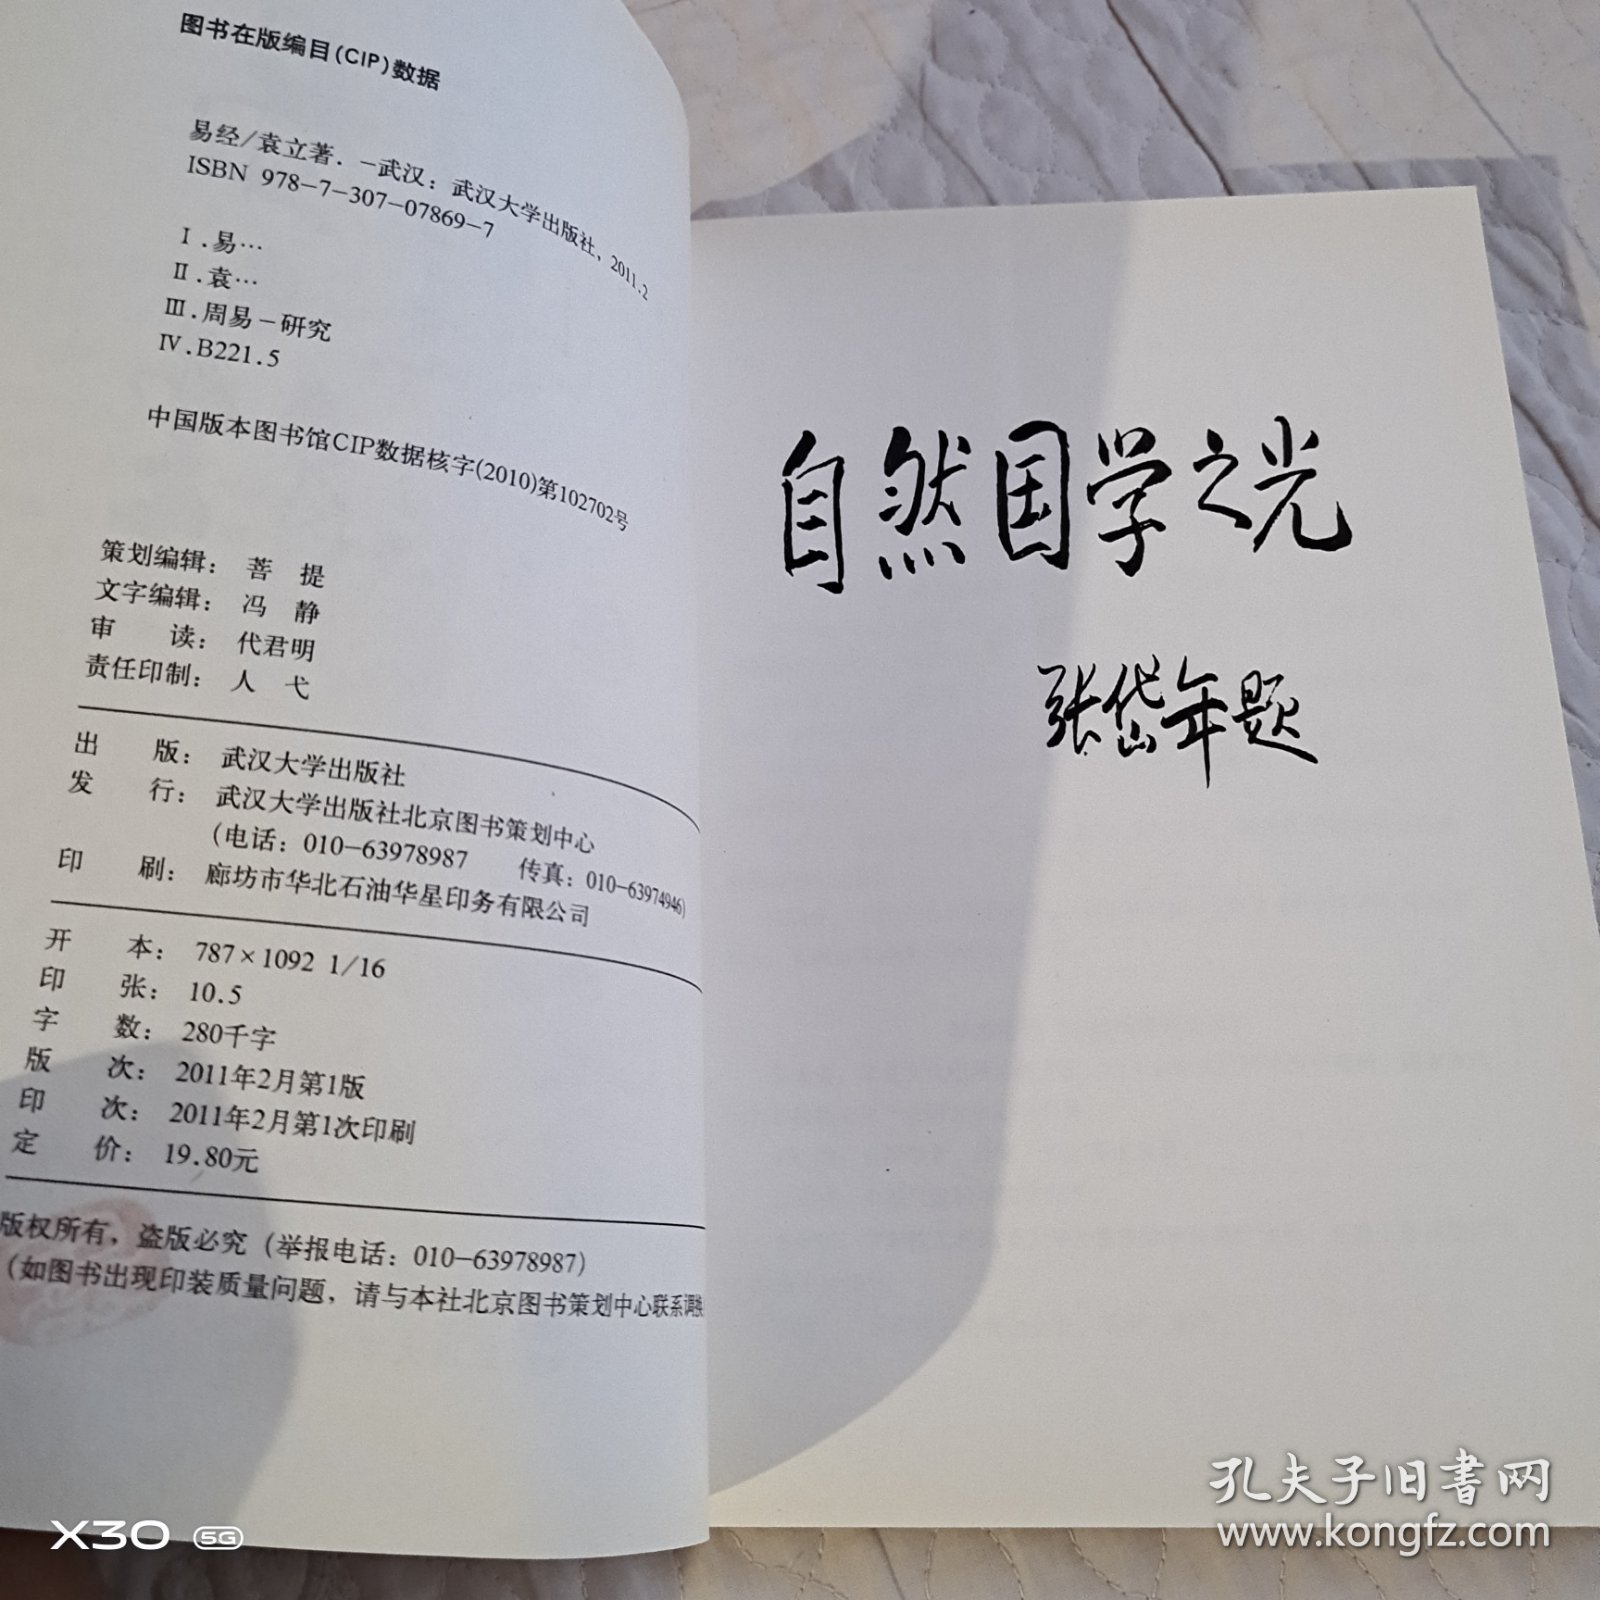 图书在版编目(CIP)数据
易经/袁立著. -武汉: 武汉大学出版社, 2011.2
ISBN 978-7-307-07869-7
Ⅰ.易…
Ⅱ.袁…
Ⅲ.周易-研究
Ⅳ.B221.5
中国版本图书馆CIP数据核字(2010)第102702号
策划编辑: 菩 提
文字编辑: 冯 静
审 读: 代君明
责任印制: 人 弋
出 版: 武汉大学出版社
发 行: 武汉大学出版社北京图书策划中心
(电话: 010-63978987 传真: 010-63974946)
印 刷: 廊坊市华北石油华星印务有限公司
开 本: 787×1092 1/16
印 张: 10.5
字 数: 280千字
版 次: 2011年2月第1版
印 次: 2011年2月第1次印刷
定 价: 19.80元
版权所有, 盗版必究 (举报电话: 010-63978987)
(如图书出现印装质量问题, 请与本社北京图书策划中心联系调换
自然国学之光
张岱年题
X30 5G
孔夫子旧書网
www.kongfz.com